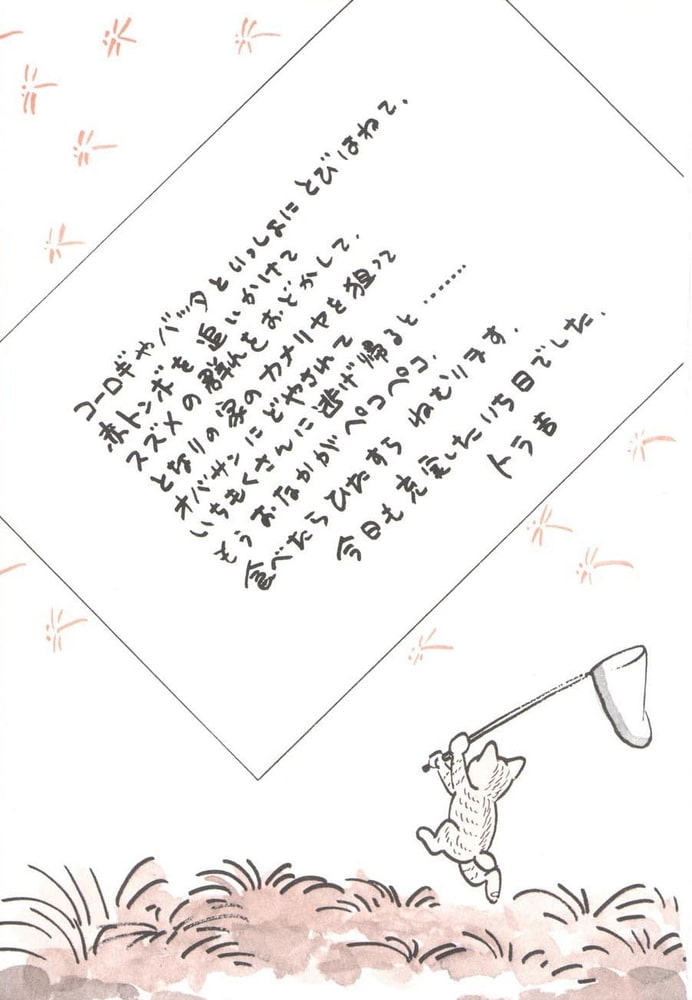 コーロギやバッタといっしょに とびはねて、
赤トンボを追いかけて
スズメの群れをおどかして、
となりの家のカメリヤを狙って
オバサンにどやされて
いちもくさんに逃げ帰ると………
もうおなかがペコペコ、
食べたらひたすら ねむります。
今日も充実したいち日でした。
トラ吉